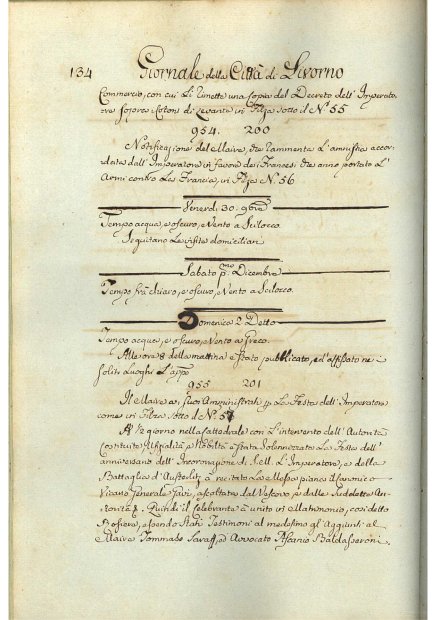 134 Giornale della Città di Livorno
Commercio, con cui si rimette una Copia del Decreto dell'Imperato
re sopra i Cotoni di Levante in Filza sotto il N.° 55
954. 200
Notificazione del Maire, che rammenta l'amnistia accor
data dall'Imperatore in favore dei Francesi che anno portato l'
Armi contro la Francia, in Filza N.° 56
Venerdi 30. 9bre
Tempo acqua, e oscuro, e Vento a Scilocco
Seguitano le visite domiciliari
Sabato p.mo Dicembre
Tempo frà chiaro, e oscuro, e Vento a Scilocco.
Domenica 2 Detto
Tempo acqua, e oscuro, e Vento a Greco.
Alle ore 8 della mattina è stato pubblicato, ed affisso nei
soliti Luoghi l'app.
955 201
Il Maire a' suoi Amministrati p. la Festa dell'Imperatore
come in Filza sotto il N.° 57
A 12 giorno nella Cattedrale con l'intervento dell'Autorità
Costituite, e Nobiltà è stata solennizzata la Festa dell'
anniversario dell'Incoronazione di S.M. l'Imperatore, e della
Battaglia d'Austerliz à recitato la Messa piana il Canonico
Vicario Generale ascoltata dal Vescovo, e dalle suddette Au-
torità. Quindi il Celebrante à unito in Matrimonio,
essendo stati Testimonj al medesimo gl'Aggiunti al
Maire Tommaso e Avvocato Ascanio Baldasseroni.